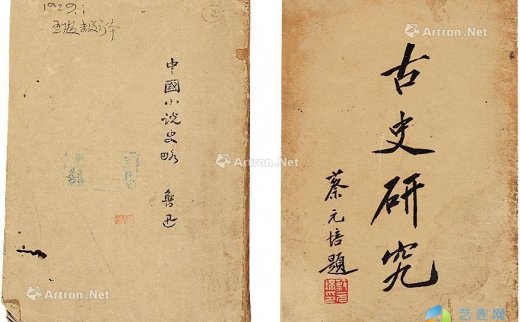 1929.1
②
中國小说史略 魯迅
古史研究
蔡元培題
Artron.Net
Artron.Net
Artron.Net
Artron.Net
Artron.Net
艺连网